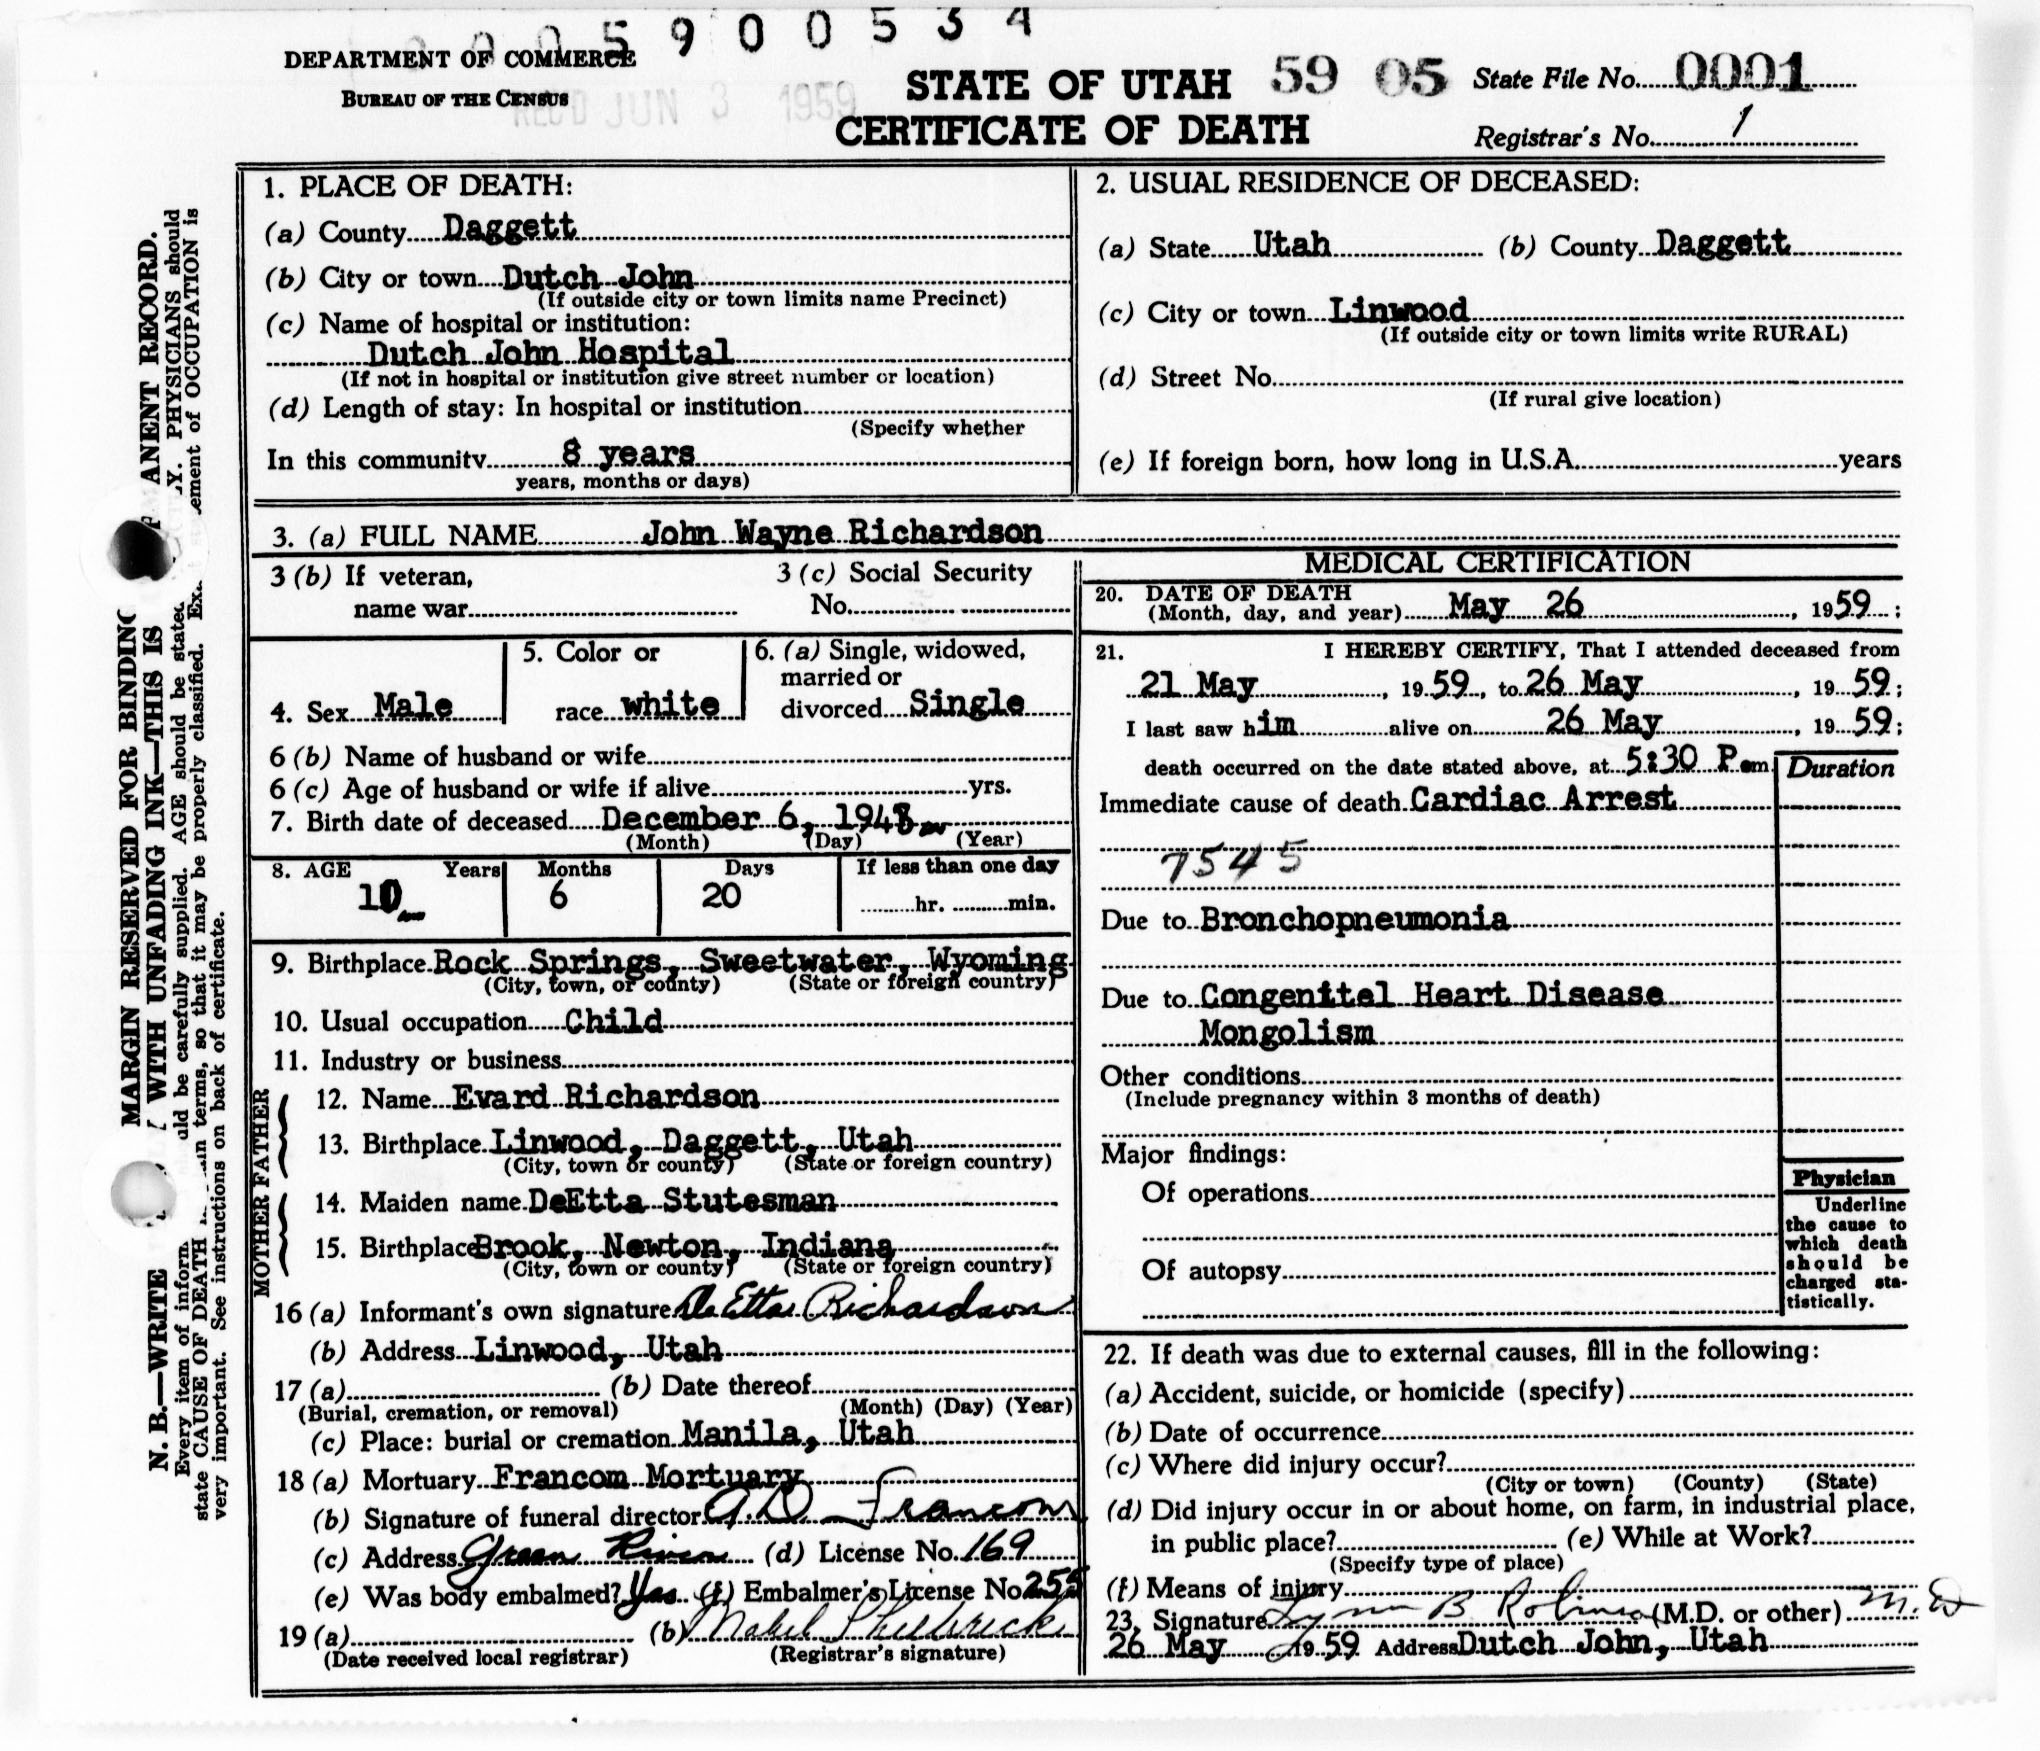 5 9 0 0 5 3 4
DEPARTMENT OF COMMERCE
BUREAU OF THE CENSUS
REC'D JUN 3 1959
STATE OF UTAH
CERTIFICATE OF DEATH
59 05
State File No. 0001
Registrar's No. 1
1. PLACE OF DEATH:
(a) County Daggett
(b) City or town Dutch John
(If outside city or town limits name Precinct)
(c) Name of hospital or institution:
Dutch John Hospital
(If not in hospital or institution give street number or location)
(d) Length of stay: In hospital or institution
(Specify whether
In this community 8 years
years, months or days)
2. USUAL RESIDENCE OF DECEASED:
(a) State Utah (b) County Daggett
(c) City or town Linwood
(If outside city or town limits write RURAL)
(d) Street No.
(If rural give location)
(e) If foreign born, how long in U.S.A. years
3. (a) FULL NAME John Wayne Richardson
3 (b) If veteran,
name war
3 (c) Social Security
No.
4. Sex Male
5. Color or
race white
6. (a) Single, widowed,
married or
divorced Single
6 (b) Name of husband or wife
6 (c) Age of husband or wife if alive yrs.
7. Birth date of deceased December 6, 1948
(Month) (Day) (Year)
8. AGE Years Months Days If less than one day
10 6 20 hr. min.
9. Birthplace Rock Springs, Sweetwater, Wyoming
(City, town, or county) (State or foreign country)
10. Usual occupation Child
11. Industry or business
FATHER
12. Name Evard Richardson
13. Birthplace Linwood, Daggett, Utah
(City, town or county) (State or foreign country)
MOTHER
14. Maiden name DeEtta Stutesman
15. Birthplace Brook, Newton, Indiana
(City, town or county) (State or foreign country)
16 (a) Informant's own signature DeEtta Richardson
(b) Address Linwood, Utah
17 (a) (b) Date thereof
(Burial, cremation, or removal) (Month) (Day) (Year)
(c) Place: burial or cremation Manila, Utah
18 (a) Mortuary Francom Mortuary
(b) Signature of funeral director A.D. Francom
(c) Address Green River (d) License No. 169
(e) Was body embalmed? Yes (f) Embalmer's License No 255
19 (a) (b) Mabel Philbrick
(Date received local registrar) (Registrar's signature)
MEDICAL CERTIFICATION
20. DATE OF DEATH
(Month, day, and year) May 26, 1959;
21. I HEREBY CERTIFY, That I attended deceased from
21 May, 19 59, to 26 May, 19 59;
I last saw him alive on 26 May, 19 59;
death occurred on the date stated above, at 5:30 P.m.
Duration
Immediate cause of death Cardiac Arrest
7545
Due to Bronchopneumonia
Due to Congenitel Heart Disease
Mongolism
Other conditions
(Include pregnancy within 3 months of death)
Major findings:
Of operations
Of autopsy
Physician
Underline
the cause to
which death
should be
charged sta-
tistically.
22. If death was due to external causes, fill in the following:
(a) Accident, suicide, or homicide (specify)
(b) Date of occurrence
(c) Where did injury occur?
(City or town) (County) (State)
(d) Did injury occur in or about home, on farm, in industrial place,
in public place? (e) While at Work?
(Specify type of place)
(f) Means of injury
23. Signature Lynn B Robinson (M.D. or other) M.D
26 May 19 59 Address Dutch John, Utah
MARGIN RESERVED FOR BINDING
N. B.—WRITE WITH UNFADING INK—THIS IS ANENT RECORD.
Every item of inform uld be carefully supplied. AGE should be stated Y. PHYSICIANS should
state CAUSE OF DEATH in terms, so that it may be properly classified. Ex ement of OCCUPATION is
very important. See instructions on back of certificate.